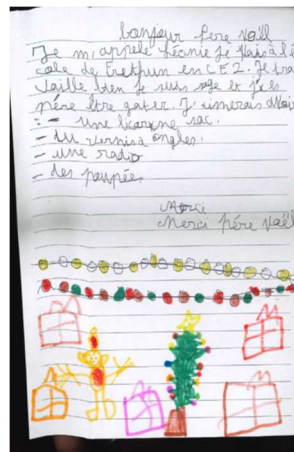 bonjour Père Noëll
Je m'appele Léanie Je vais à l'é
cole de en CE2. Je tra
vaille bien Je suis sage et j'es
père être gater. J'aimerais
- une licorne sac.
- du vernis à ongles.
- une radio
- des poupées
Merci
Merci père Noël